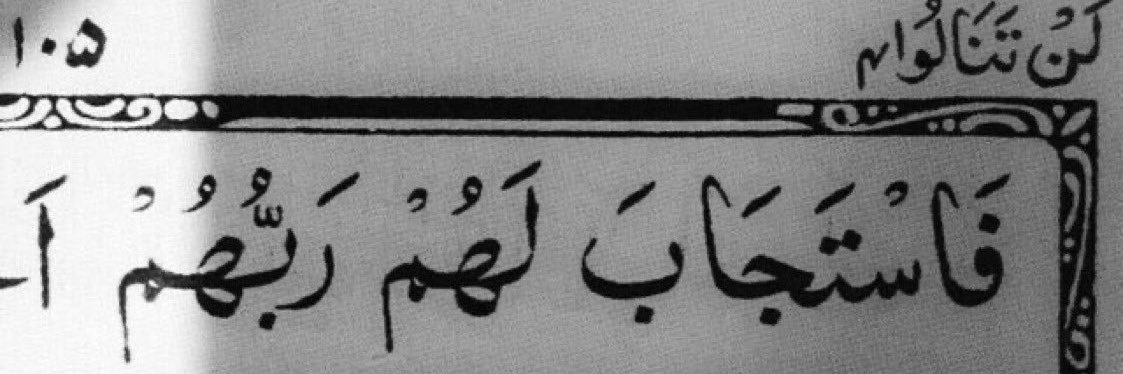 لَنْ تَنَالُوا۴ ۱۰۵
فَاسْتَجَابَ لَهُمْ رَبُّهُمْ اَ